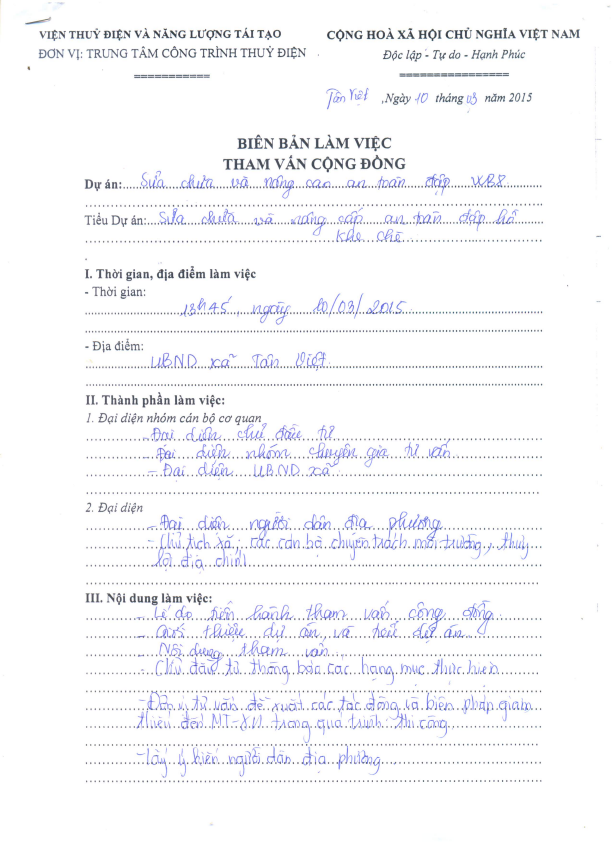 VIỆN THUỶ ĐIỆN VÀ NĂNG LƯỢNG TÁI TẠO
ĐƠN VỊ: TRUNG TÂM CÔNG TRÌNH THUỶ ĐIỆN
CỘNG HOÀ XÃ HỘI CHỦ NGHĨA VIỆT NAM
Độc lập - Tự do - Hạnh Phúc
Tân Việt, Ngày 10 tháng 03 năm 2015
BIÊN BẢN LÀM VIỆC
THAM VẤN CỘNG ĐỒNG
Dự án: Sửa chữa và nâng cao an toàn đập WB8
Tiểu Dự án: Sửa chữa và nâng cấp an toàn đập hồ
Khe Chè
I. Thời gian, địa điểm làm việc
- Thời gian:
13h45, ngày 10/03/2015
- Địa điểm:
UBND xã Tân Việt
II. Thành phần làm việc:
1. Đại diện nhóm cán bộ cơ quan
- Đại diện chủ đầu tư
- Đại diện nhóm chuyên gia tư vấn
- Đại diện UBND xã
2. Đại diện
- Đại diện người dân địa phương
- Chủ tịch xã, các cán bộ chuyên trách môi trường, thuỷ
lợi địa chính
III. Nội dung làm việc:
- Lí do tiến hành tham vấn cộng đồng
- Giới thiệu dự án và tiểu dự án
- Nội dung tham vấn
- Chủ đầu tư thông báo các hạng mục thực hiện
- Đơn vị tư vấn đề xuất các tác động và biện pháp giảm
thiểu đến MT-XH trong quá trình thi công
- Lấy ý kiến người dân địa phương